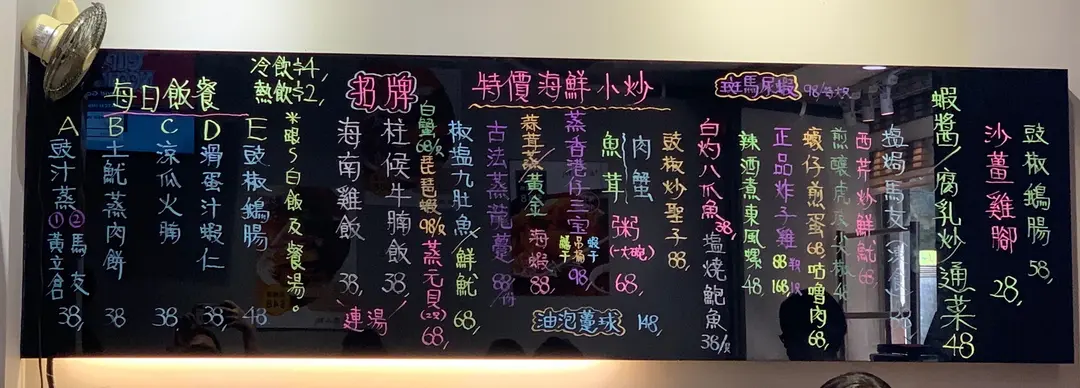 每日飯餐
冷飲÷4,
熱飲÷2,
A 豉汁蒸①黃立倉②馬友 38,
B 土魷蒸肉餅 38
C 涼瓜火腩 38,
D 滑蛋汁蝦仁 38,
E 豉椒鵝腸 48
白飯及餐湯。
招牌
海南雞飯 38,
柱候牛腩飯 38,
連湯
特價海鮮小炒
白蟹68/
琵琶蝦98/
蒸元貝 68,
椒塩九肚魚/鮮魷 68,
古法蒸龍躉 88/
蒜茸蒸/黃金海蝦 88,
蒸香港仔三宝 98,
魚茸肉蟹粥(大碗) 68,
豉椒炒聖子 88,
油泡躉球 148,
斑馬尿蝦 98/
白灼八爪魚 38,
塩燒鮑魚 38/
辣酒煮東風螺 48
正品炸子雞 88 168
蠔仔煎蛋 68
咕嚕肉 68,
煎釀虎皮 48
西芹炒鮮魷 68
塩焗馬友
蝦醬/腐乳炒通菜 48
沙薑雞腳 28,
豉椒鵝腸 58,